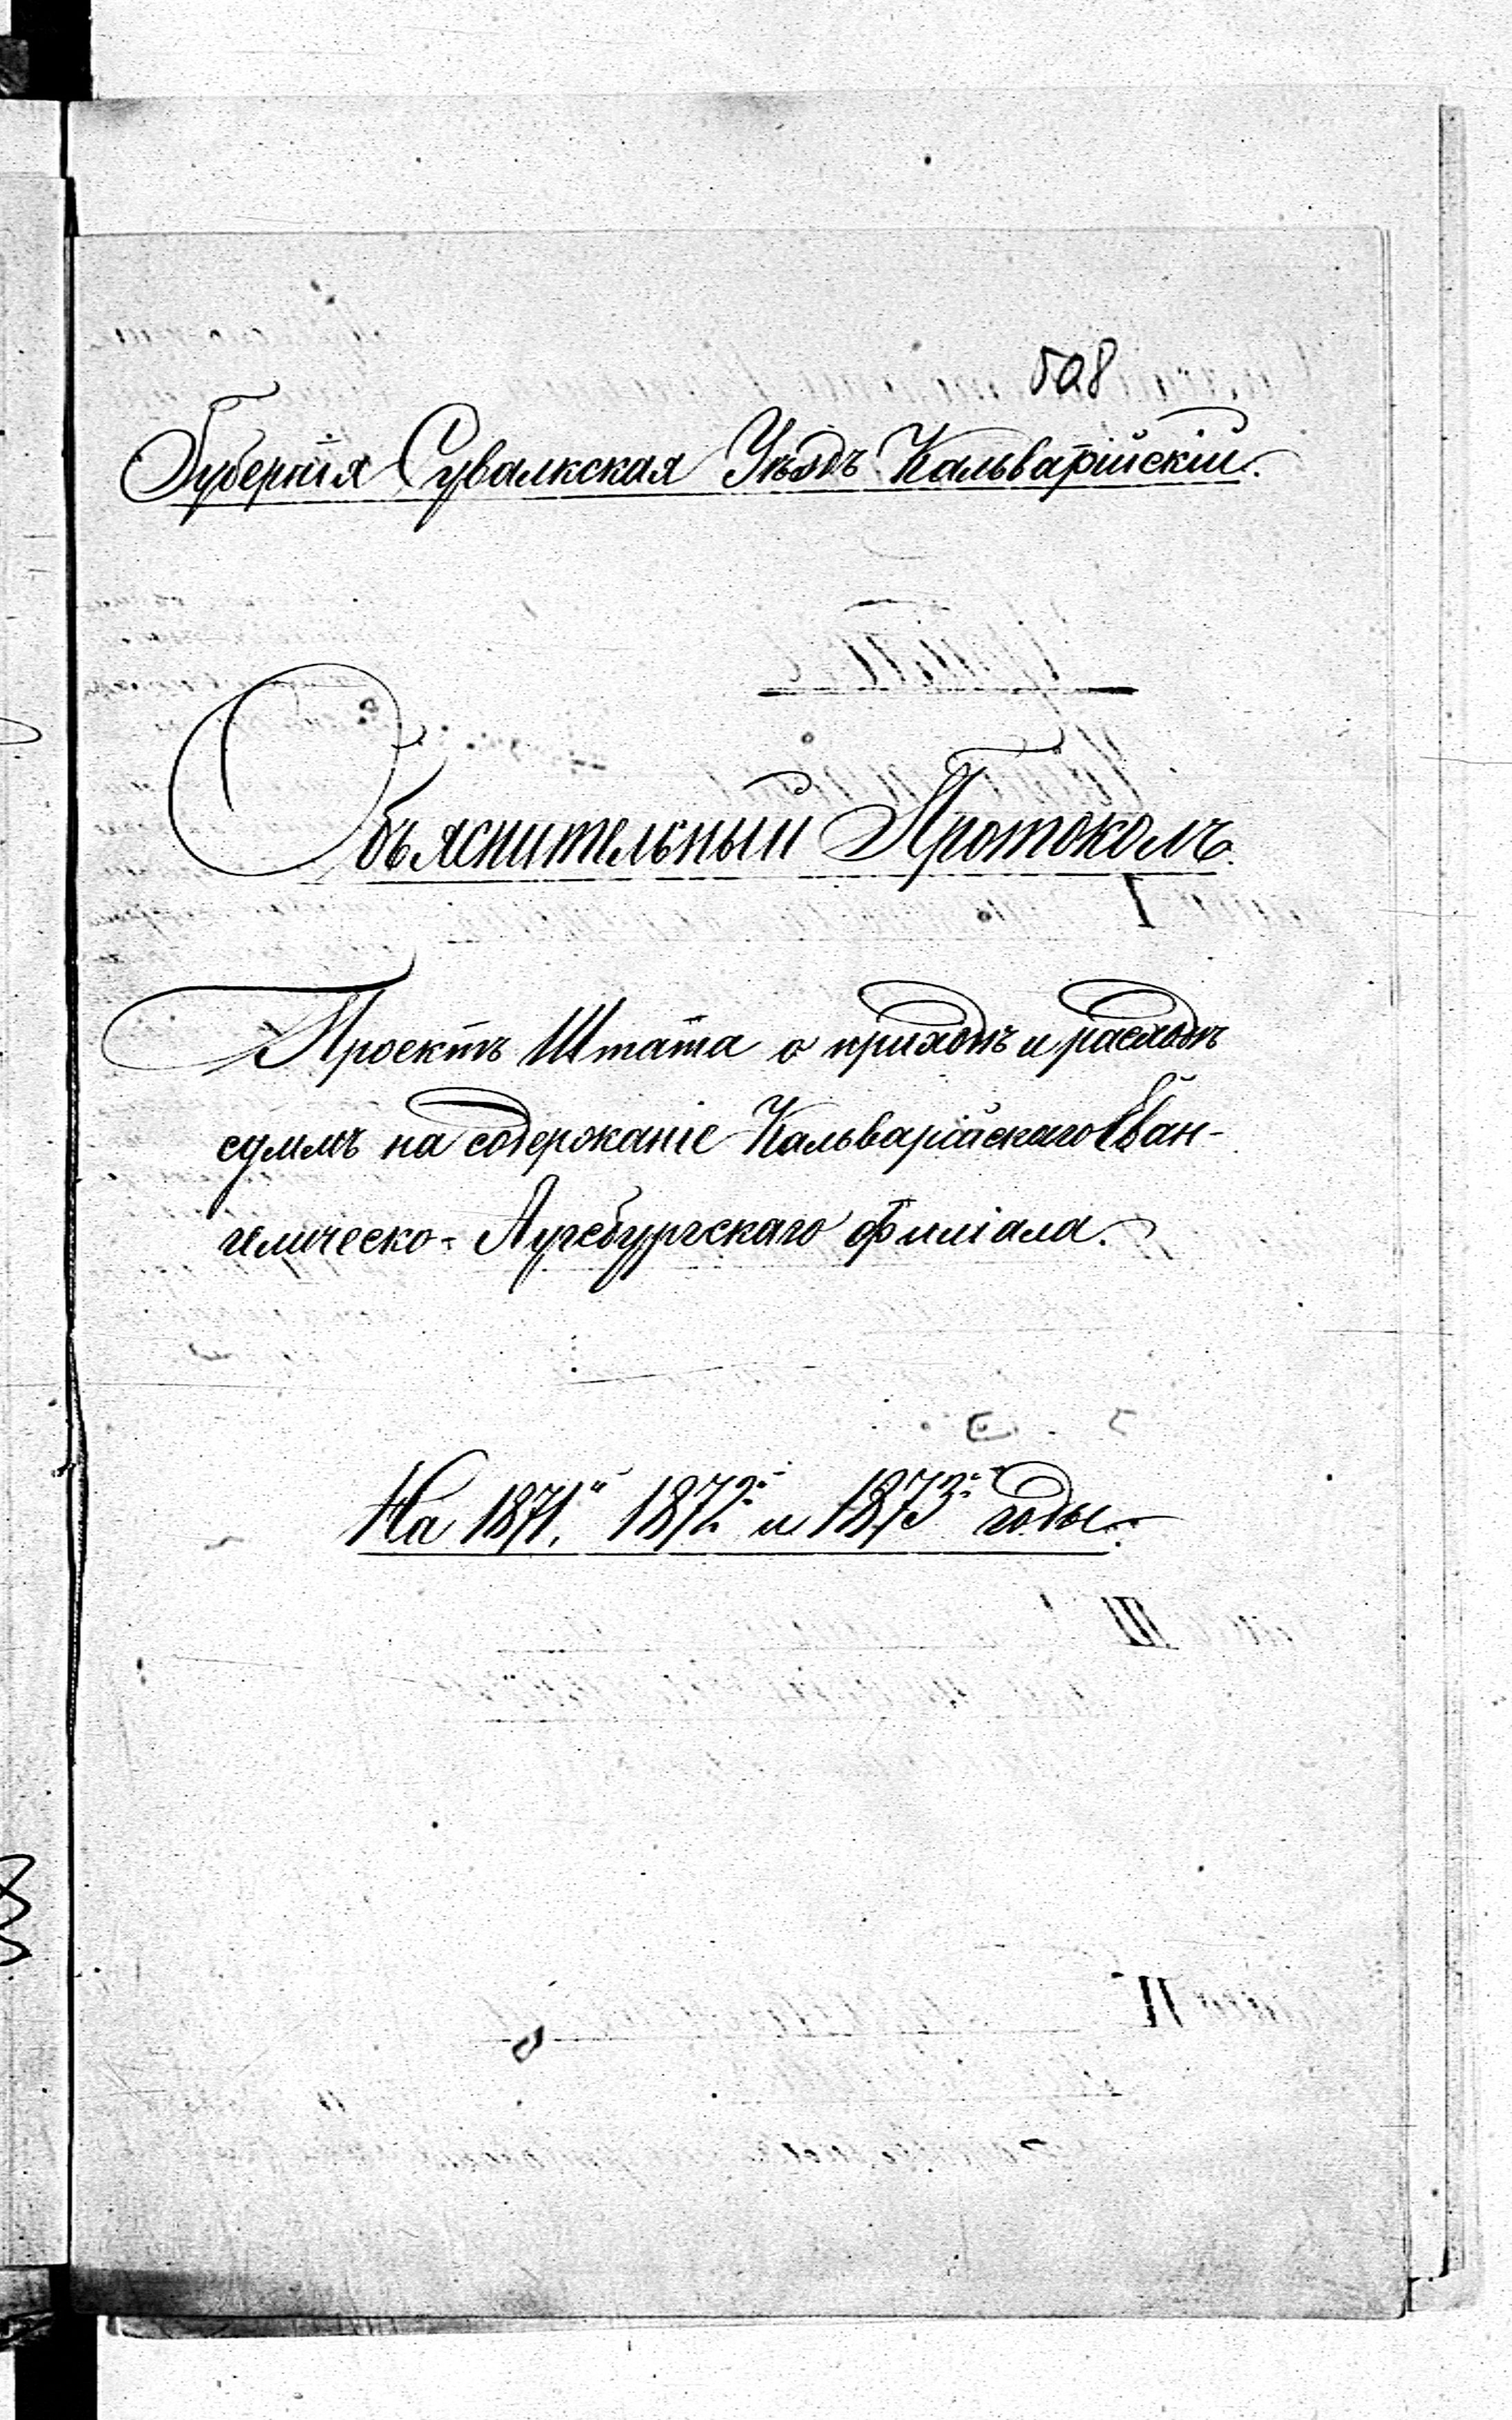 508
Губернія Сувалкская Уѣздъ Кальварійскій.
Объяснительный Протоколъ.
Проектъ Штата о приходѣ и расходѣ
суммъ на содержаніе Кальварійскаго Еван-
гелическо-Аугсбургскаго филіала.
На 1871й 1872й и 1873й годы.